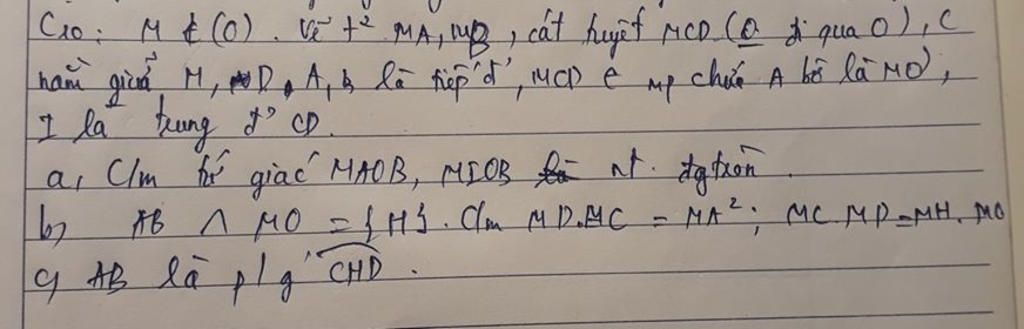 C10: M ∉ (O). Vẽ t² MA, MB, cát tuyết MCD (O đi qua O), C
nằm giữa M, D, A, B là tiếp đ', MCD ∈ mp chứa A bờ là MO,
I là trung đ' CD.
a, C/m tứ giác MAOB, MIOB nt. đg tròn.
b, AB ∩ MO = {H}. C/m MD.MC = MA²; MC.MD = MH.MO
c, AB là p/g CHD.